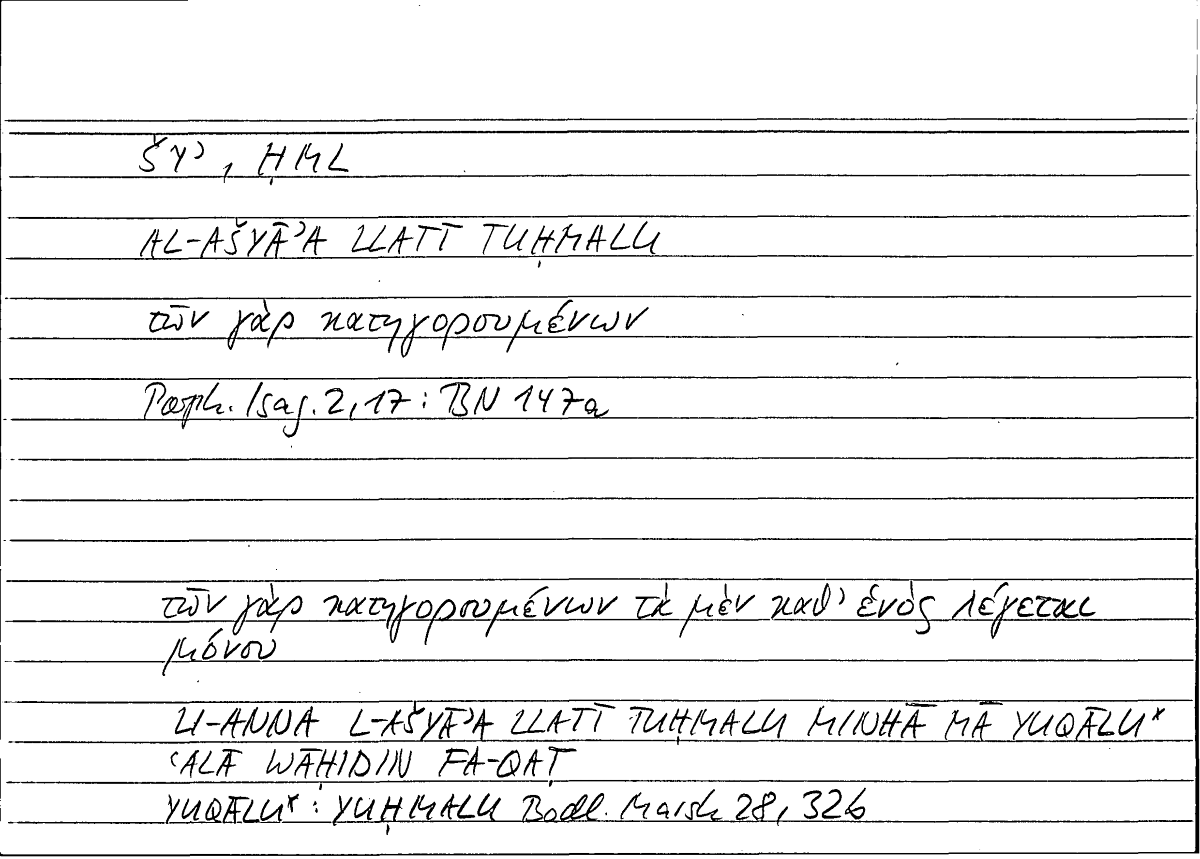 ŠYʾ, ḤML
AL-AŠYĀʾA LLATĪ TUḤMALU
τῶν γὰρ κατηγορουμένων
Porph. Isag. 2, 17 : BN 147a
τῶν γὰρ κατηγορουμένων τὰ μὲν καθ' ἑνὸς λέγεται
μόνου
LI-ANNA L-AŠYĀʾA LLATĪ TUḤMALU MINHĀ MĀ YUQĀLU*
ʿALĀ WĀḤIDIN FA-QAṬ
YUQĀLU* : YUḤMALU Bodl. Marsh 28, 32b